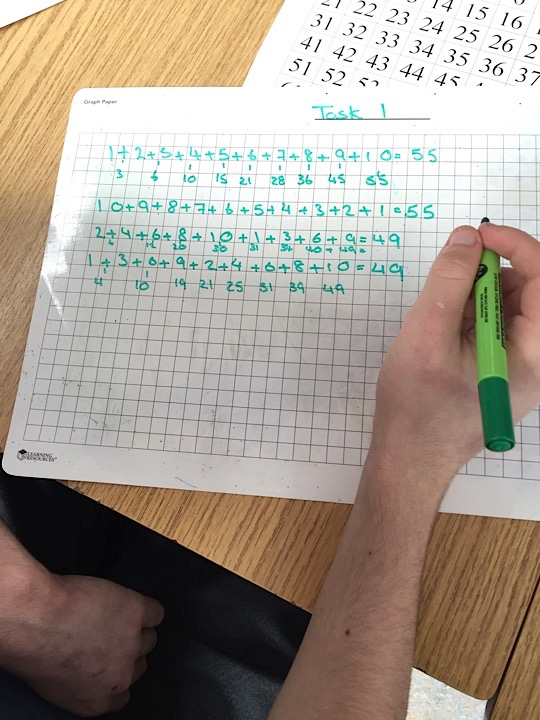 21 22 23 14 15 16
31 32 33 24 25 26 2
41 42 43 34 35 36 37
51 52 44 45
Graph Paper
Task 1
1+2+3+4+5+6+7+8+9+10=55
3 6 10 15 21 28 36 45 55
10+9+8+7+6+5+4+3+2+1=55
2+4+6+8+10+1+3+6+9=49
20 30 31 34 40 49
1+3+6+9+2+4+6+8+10=49
4 10 19 21 25 31 39 49
LEARNING
RESOURCES